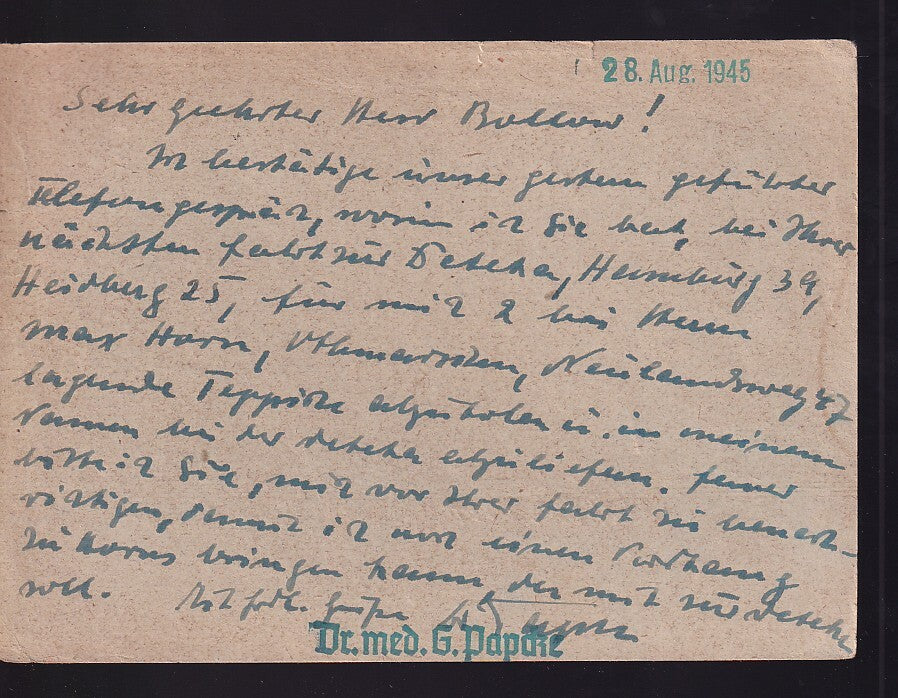 28. Aug. 1945
Sehr geehrter Herr Bollow!
Ich bestätige unser gestern geführtes
Telefongespräch, worin ich Sie bat, bei Ihrer
nächsten Fahrt zur Deteka, Hamburg 39,
Heidberg 25, für mich 2 bei Herrn
Max Horn, Othmarschen, Neulandsweg 47
lagernde Teppiche abzuholen u. in meinem
Namen bei der Deteka abzuliefern. Ferner
bitte ich Sie, mich vor Ihrer Fahrt zu benach-
richtigen, damit ich noch einen Vorhang
zu Horns bringen kann, der mit zur Deteka
soll. Mit frdl. Grüßen
Dr. med. G. Papcke